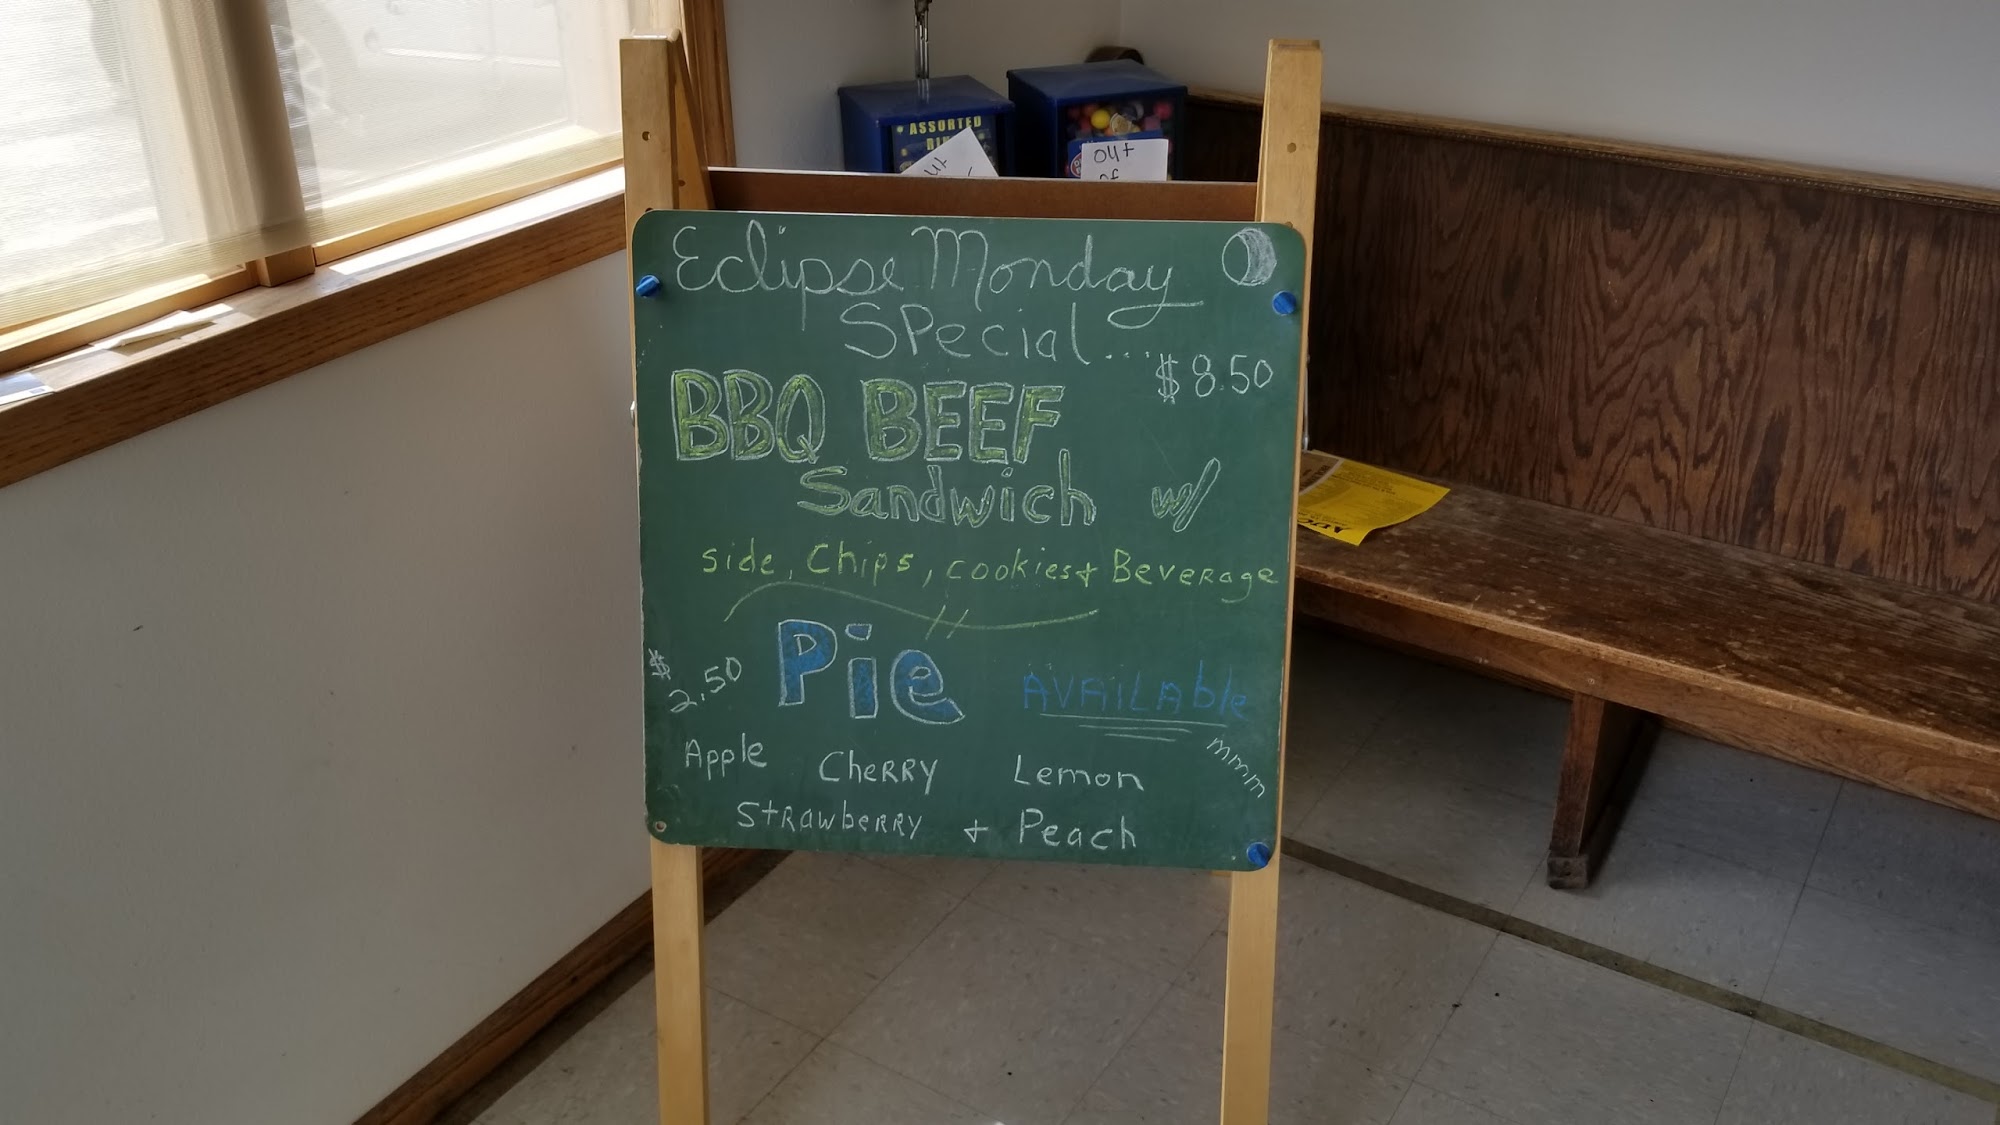 ASSORTED
out
of
Eclipse Monday
Special....
$8.50
BBQ BEEF
Sandwich w/
side, Chips, cookies + Beverage
$2.50
Pie
AVAILAble
mmm
Apple Cherry Lemon
Strawberry + Peach